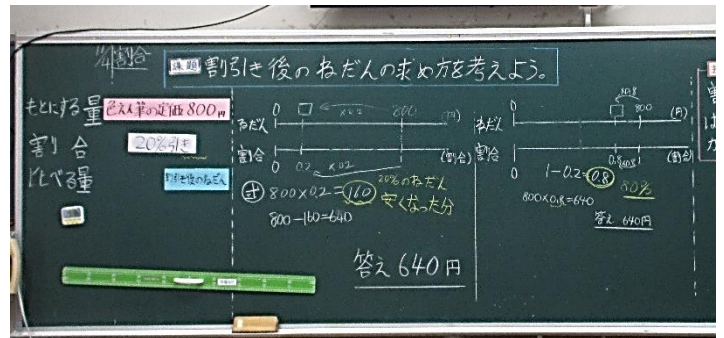 11/4 割合
課題 割引き後のねだんの求め方を考えよう。
もとにする量 色えん筆の定価800円
割り合 20%引き
くらべる量 割引き後のねだん
0 □ 800 (円)
×0.2
ねだん
割合
0 0.2 ×0.2 (割合)
式 800×0.2=160
20%のねだん
安くなった分
800-160=640
答え 640円
×0.8
0 □ 800 (円)
ねだん
割合
0 0.8 (割合)
1-0.2=0.8
80%
800×0.8=640
答え 640円
割
は